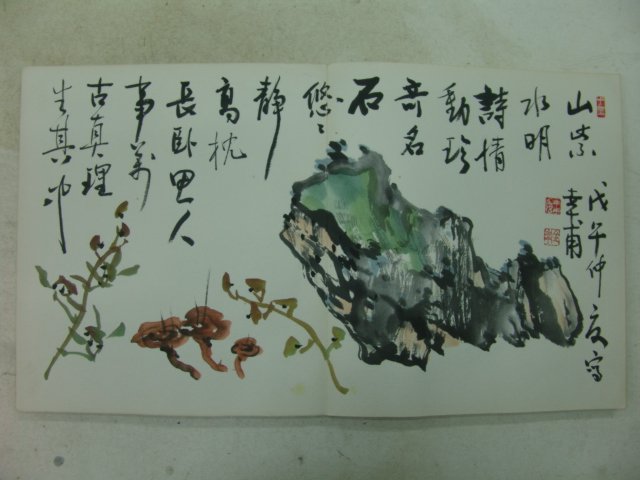 山紫
水明
詩情
動珍
奇名
石
悠〻
靜
高枕
長卧人
事萬
古真理
生其中
戊午仲夏寫
甫